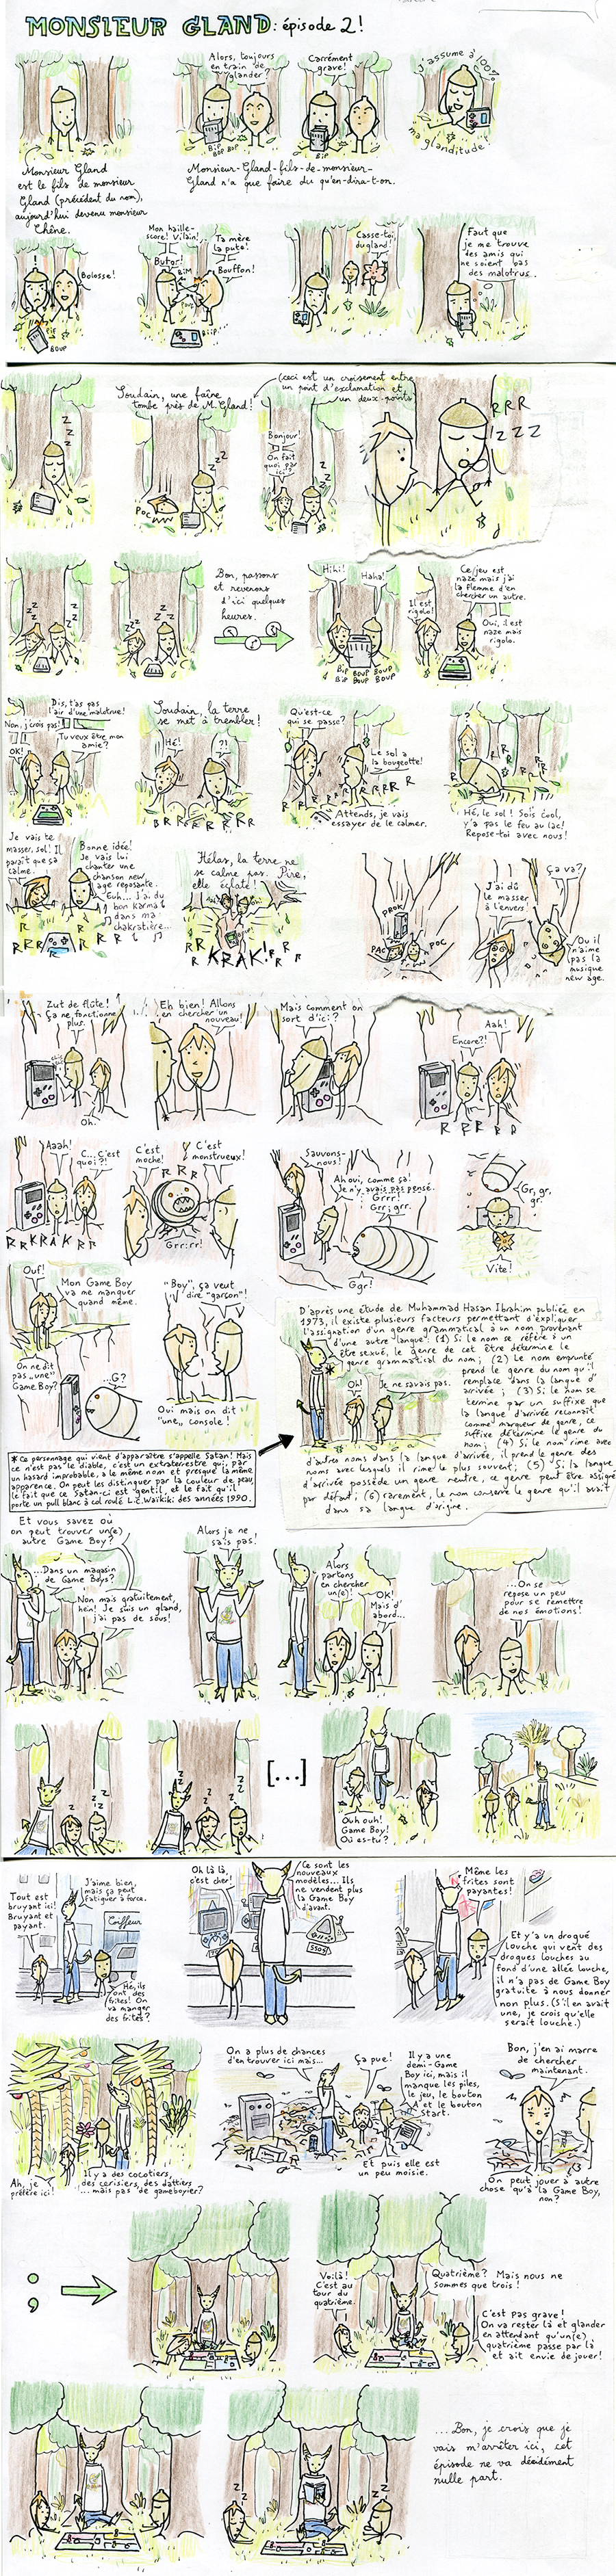 MONSIEUR GLAND: épisode 2!
Monsieur Gland
est le fils de monsieur
Gland (précédent du nom),
aujourd'hui devenu monsieur
Chêne.
Alors, toujours
en train de
glander?
BIP
BOP BOP
Carrément
grave!
BIP
Monsieur-Gland-fils-de-monsieur-
Gland n'a que faire du qu'en-dira-t-on.
J'assume à 100%
ma glanditude!
!
Bolosse!
BOUP
Mon haille-
score! Vilain!
Butor!
BIM
Ta mère
la pute!
Bouffon!
BIIP
Casse-toi,
du gland!
Faut que
je me trouve
des amis qui
ne soient pas
des malotrus.
Z
Z
Z
Soudain, une faîne
tombe près de M. Gland!
(ceci est un croisement entre
un point d'exclamation et
un deux-points)
POC
Z
Z
Z
Bonjour!
On fait
quoi par
ici?
Z
Z
RRR
ZZZ
Z
Z
Z
Z
Z
Z
Bon, passons
et revenons
d'ici quelques
heures.
Hihi!
Haha!
BIP BOUP BOUP
BIP BOUP BOUP
Il est
rigolo!
Ce jeu est
naze mais j'ai
la flemme d'en
chercher un autre.
Oui, il est
naze mais
rigolo.
Dis, t'as pas
l'air d'une malotrue!
Non, j'crois pas!
Tu veux être mon
amie?
OK!
Soudain, la terre
se met à trembler!
Hé!
?!
R R R R R R
Qu'est-ce
qui se passe?
Le sol a
la bougeotte!
Attends, je vais
essayer de le calmer.
?
R R R R
Hé, le sol! Sois cool,
y'a pas le feu au lac!
Repose-toi avec nous!
Je vais te
masser, sol! Il
paraît que ça
calme.
Bonne idée!
Je vais lui
chanter une
chanson new
age reposante.
Euh... j'ai du
bon karma
dans ma
chakratière...
R R R R R
Hélas, la terre ne
se calme pas. Pire,
elle éclate!
KRAK!
R R R
PROK
PAC
POC
J'ai dû
le masser
à l'envers.
Ça va?
Ou il
n'aime
pas la
musique
new age.
Zut de flûte!
Ça ne fonctionne
plus.
Oh.
Eh bien! Allons
en chercher un
nouveau!
Mais comment on
sort d'ici?
Encore?!
Aah!
R R R R
Aaah!
C... C'est
quoi?!
RRKRAK RR
C'est
moche!
C'est
monstrueux!
R R R
Grr:rr!
Sauvons-
nous!
Ah oui, comme ça!
Je n'y avais pas pensé.
Grrr!
Grr; grr.
Ggr!
Gr, gr,
gr.
Vite!
Ouf!
Mon Game Boy
va me manquer
quand même.
On ne dit
pas "une"
Game Boy?
...G?
"Boy", ça veut
dire "garçon"!
Oui mais on dit
"une" console!
D'après une étude de Muhammad Hasan Ibrahim publiée en
1973, il existe plusieurs facteurs permettant d'expliquer
l'assignation d'un genre grammatical à un nom provenant
d'une autre langue: (1) Si le nom se réfère à un
être sexué, le genre de cet être détermine le
genre grammatical du nom; (2) Le nom emprunté
prend le genre du nom qu'il
remplace dans la langue d'
arrivée; (3) Si le nom se
termine par un suffixe que
la langue d'arrivée reconnaît
comme marqueur de genre, ce
suffixe détermine le genre du
nom; (4) Si le nom rime avec
d'autres noms dans la langue d'arrivée, il prend le genre des
noms avec lesquels il rime le plus souvent; (5) Si la langue
d'arrivée possède un genre neutre, ce genre peut être assigné
par défaut; (6) rarement, le nom conserve le genre qu'il avait
dans sa langue d'origine.
*
Oh!
Je ne savais pas.
* Ce personnage qui vient d'apparaître s'appelle Satan! Mais
ce n'est pas le diable, c'est un extraterrestre qui, par
un hasard improbable, a le même nom et presque la même
apparence. On peut les distinguer par la couleur de peau,
le fait que ce Satan-ci est gentil, et le fait qu'il
porte un pull blanc à col roulé L.C. Waïkiki des années 1990.
Et vous savez où
on peut trouver un(e)
autre Game Boy?
...Dans un magasin
de Game Boys?
Non mais gratuitement,
hein! Je suis un gland,
j'ai pas de sous!
Alors je ne
sais pas!
Alors
partons
en chercher
un(e)!
OK!
Mais d'
abord...
...On se
repose un peu
pour se remettre
de nos émotions!
Z
Z
Z
Z
Z
Z
[...]
Ouh ouh!
Game Boy!
Où es-tu?
Tout est
bruyant ici!
Bruyant et
payant.
J'aime bien,
mais ça peut
fatiguer à force.
Coiffeur
Hé, ils
ont des
frites! On
va manger
des frites?
Oh là là,
c'est cher!
Ce sont les
nouveaux
modèles... Ils
ne vendent plus
la Game Boy
d'avant.
Même les
frites sont
payantes!
Et y'a un drogué
louche qui vend des
drogues louches au
fond d'une allée louche,
il n'a pas de Game Boy
gratuite à nous donner
non plus. (S'il en avait
une, je crois qu'elle
serait louche.)
Ah, je
préfère ici!
Il y a des cocotiers,
des cerisiers, des dattiers
...mais pas de gameboyier?
On a plus de chances
d'en trouver ici mais...
Ça pue!
Il y a une
demi-Game
Boy ici, mais il
manque les piles,
le jeu, le bouton
A et le bouton
Start.
Et puis elle est
un peu moisie.
Bon, j'en ai marre
de chercher
maintenant.
On peut jouer à autre
chose qu'à la Game Boy,
non?
;
Voilà!
C'est au
tour du
quatrième.
Quatrième? Mais nous ne
sommes que trois!
C'est pas grave!
On va rester là et glander
en attendant qu'un(e)
quatrième passe par là
et ait envie de jouer!
Z
Z
Z
Z
...Bon, je crois que je
vais m'arrêter ici, cet
épisode ne va décidément
nulle part.